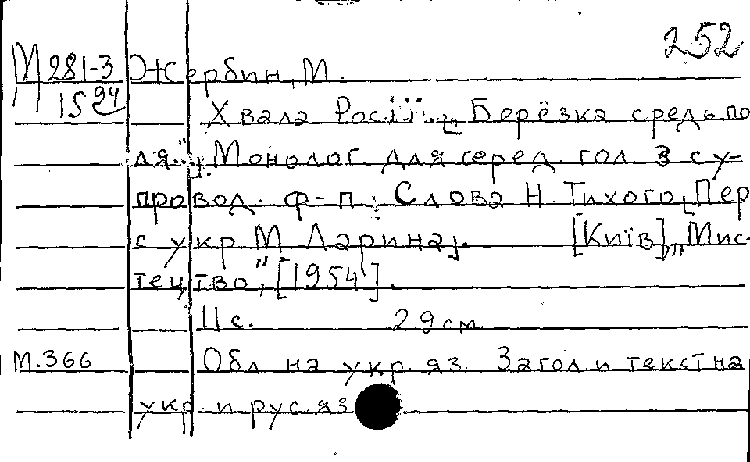 252
М 281-3 Жербин, М.
1594
Хвала Росії. „Берёзка средь по-
ля". Монолог для серед. гол з су-
провод. ф-п. Слова Н Тихого [Пер
с укр М Ларина]. [Київ], „Мис-
тецтво", [1954].
11 с. 29 см
М.366 Обл на укр. яз. Загол и текст на
укр и рус яз